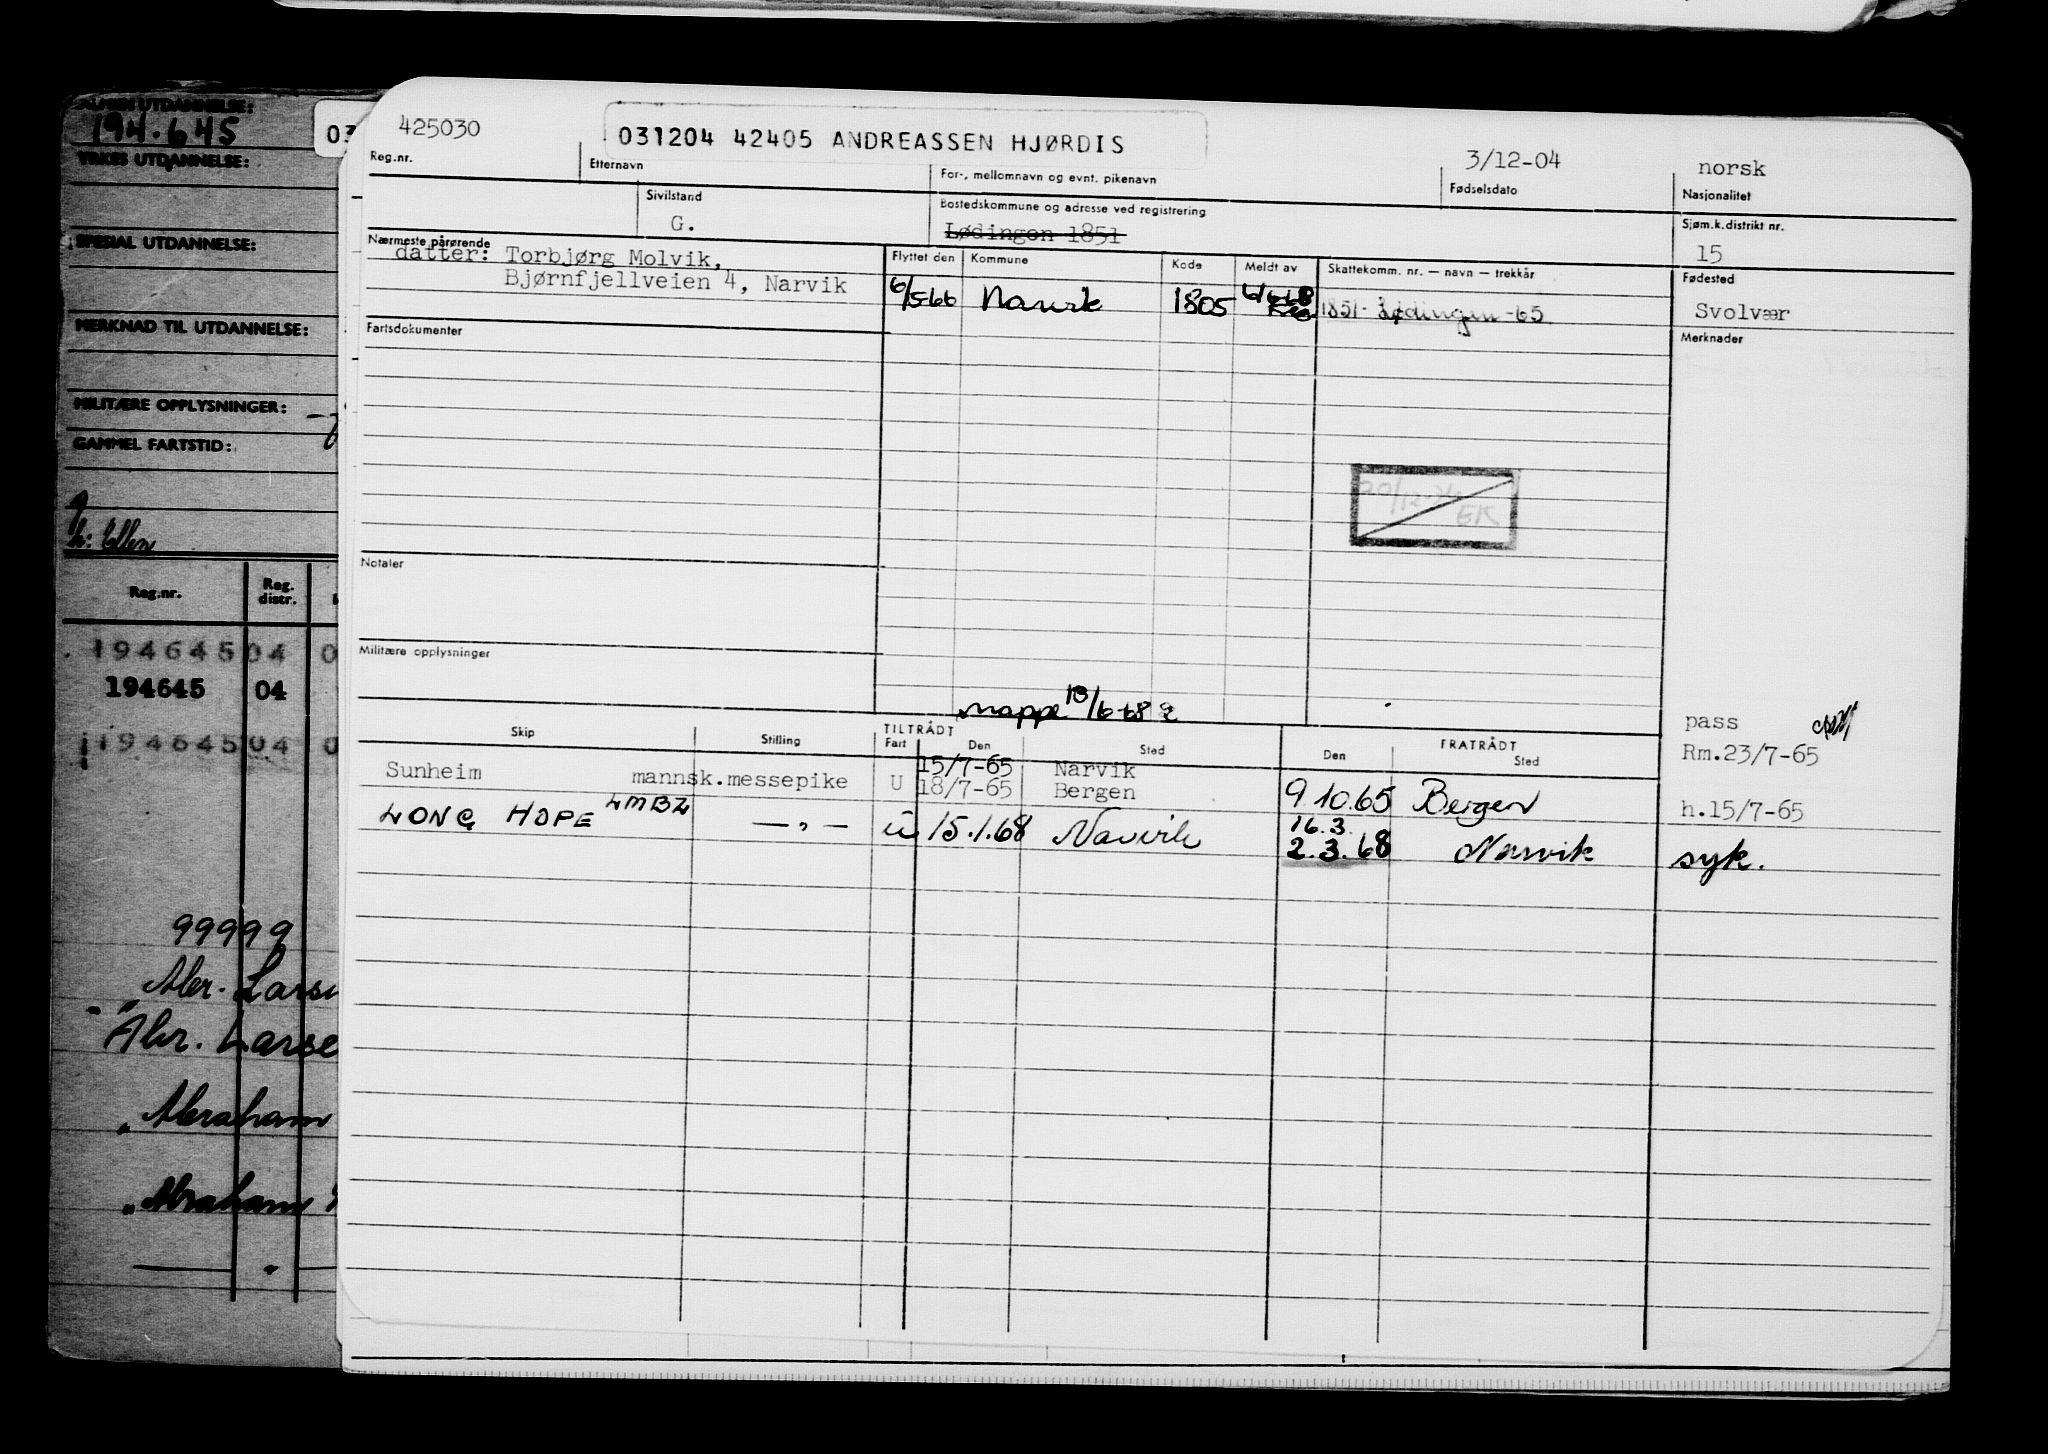 ALMEN UTDANNELSE:
194.645
YRKES UTDANNELSE:
SPESIAL UTDANNELSE:
MERKNAD TIL UTDANNELSE:
MILITÆRE OPPLYSNINGER:
GAMMEL FARTSTID:
Reg.nr. Reg. distr.
194645 04 0
194645 04
194645 04 0
99999
Abr. Larse
Abraham
Abraham
03
425030
031204 42405 ANDREASSEN HJØRDIS
3/12-04
norsk
Reg.nr. Etternavn For-, mellomnavn og evnt. pikenavn Fødselsdato Nasjonalitet
Sivilstand Bostedskommune og adresse ved registrering Sjøm.k.distrikt nr.
G. Lødingen 1851 15
Nærmeste pårørende Flyttet den Kommune Kode Meldt av Skattekomm. nr. — navn — trekkår Fødested
datter: Torbjørg Molvik,
Bjørnfjellveien 4, Narvik
6/5-66 Narvik 1805 1851- Lødingen -65 Svolvær
Fartsdokumenter Merknader
EK
Notaler
Militære opplysninger
mappe 13/6-68
pass
Skip Stilling TILTRÅDT Fart Den Sted FRATRÅDT Den Sted
Rm.23/7-65
Sunheim mannsk.messepike U 15/7-65 Narvik
18/7-65 Bergen 9.10.65 Bergen h.15/7-65
LONG HOPE LMBZ — " — U 15.1.68 Narvik 16.3.
2.3.68 Narvik syk.